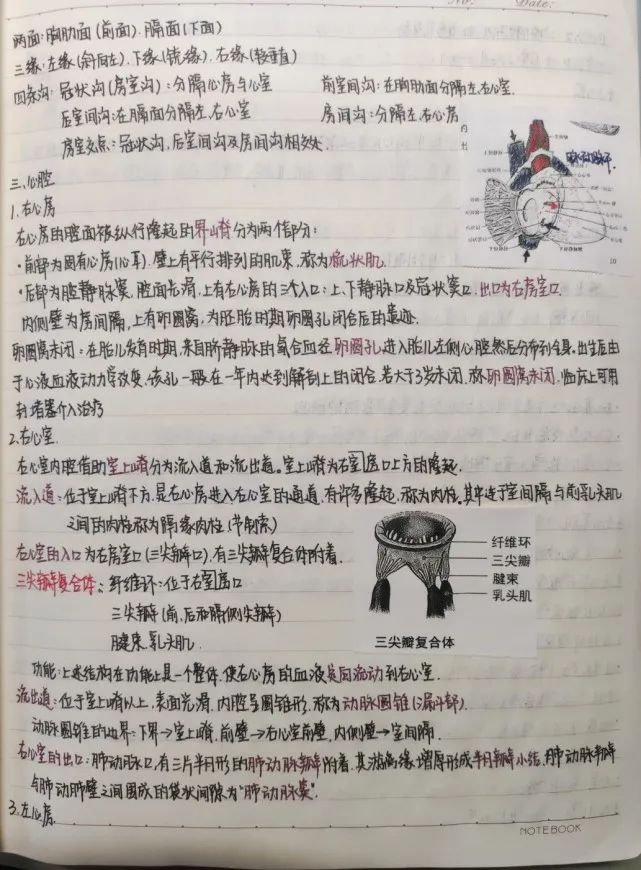 No: Date:
两面:胸肋面(前面).膈面(下面)
三缘:左缘(斜向左).下缘(锐缘).右缘(较垂直)
四条沟:冠状沟(房室沟):分隔心房与心室 前室间沟:在胸肋面分隔左、右心室.
后室间沟:在膈面分隔左、右心室 房间沟:分隔左、右心房
房室交点:冠状沟,后室间沟及房间沟相交处.
三、心腔
1.右心房
右心房的腔面被纵行隆起的界嵴分为两个部分:
·前部为固有心房(心耳).壁上有平行排列的肌束,称为梳状肌.
·后部为腔静脉窦,腔面光滑,上有右心房的三个入口:上、下静脉口及冠状窦口.出口为右房室口.
内侧壁为房间隔,上有卵圆窝,为胚胎时期卵圆孔闭合后的遗迹.
卵圆窝未闭:在胎儿发育时期,来自脐静脉的氧合血经卵圆孔进入胎儿左侧心腔然后分布到全身.出生后由
于心液血液动力学改变,该孔一般在一年内达到解剖上的闭合.若大于3岁未闭,称卵圆窝未闭.临床上可用
封堵器介入治疗
2.右心室.
右心室内腔借助室上嵴分为流入道和流出道。室上嵴为右室口上方的隆起.
流入道:位于室上嵴下方.是右心房进入右心室的通道.有许多隆起,称为肉柱.其中连于室间隔与前乳头肌
之间的肉柱称为隔缘肉柱(节制索)
右心室的入口为右房室口(三尖瓣口).有三尖瓣复合体附着.
纤维环
三尖瓣
腱束
乳头肌
三尖瓣复合体
三尖瓣复合体:纤维环:位于右室口
三尖瓣(前,后和隔侧尖瓣)
腱束.乳头肌.
功能:上述结构在功能上是一个整体.使右心房的血液定向流动到右心室.
流出道:位于室上嵴以上,表面光滑,内腔呈圆锥形,称为动脉圆锥(漏斗部).
动脉圆锥的边界:下界→室上嵴.前壁→右心室前壁,内侧壁→室间隔.
右心室的出口:肺动脉口,有三片半月形的肺动脉瓣附着.其游离缘增厚形成半月瓣小结.肺动脉瓣
与肺动脉壁之间围成的袋状间隙为"肺动脉窦".
3.左心房.
NOTEBOOK